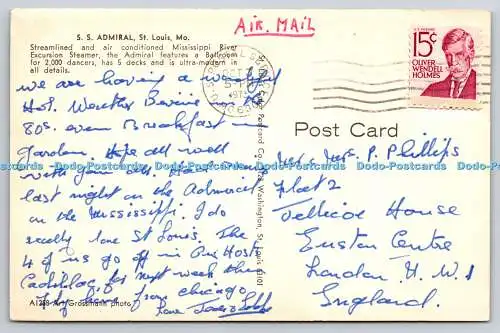 S. S. ADMIRAL, St. Louis, Mo.
Streamlined and air conditioned Mississippi River
Excursion Steamer, the Admiral features a Ballroom
for 2,000 dancers, has 5 decks and is ultra-modern in
all details.
AIR MAIL
U.S. POSTAGE
15¢
OLIVER
WENDELL
HOLMES
we are having a wonderful
Hot Weather Being in the
80s. even Breakfast in
Garden. Hope all well
with you all. Have been
last night on the Admiral
on the Mississippi. I do
really love St Louis. The
4 of us go off in our Host
Cadillac for next week then
fly home from chicago
love
Post Card
Mr & Mrs. P. Phillips
Flat 2
Tellicoe House
Euston Centre
London N. W. 1
England.
Postcard Co., Washington, St. Louis
Art Grossmann photo
Dodo-Postcards Dodo-Postcards Dodo-Postcards Dodo-Postcards Dodo-Postcards